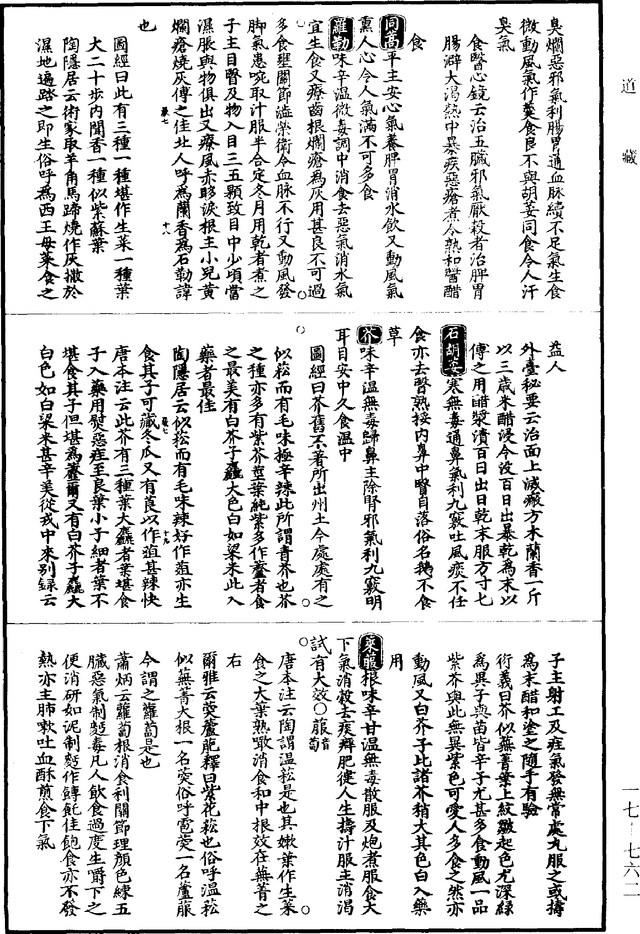 道藏
臭爛惡邪氣利腸胃通血脉續不足氣生食
微動風氣作羹食良不與胡荽同食令人汗
臭氣
食醫心鏡云治五臟邪氣厭殺者治脾胃
腸澼大渴熱中暴疾惡瘡煮令熟和醬醋
食
同蒿平主安心氣養脾胃消水飲又動風氣
熏人心令人氣滿不可多食
羅勒味辛溫微毒調中消食去惡氣消水氣
宜生食又療齒根爛瘡為灰用甚良不可過
多食壅關節澁榮衛令血脉不行又動風發
脚氣患啘取汁服半合定冬月用乾者煮之
子主目瞖及物入目三五顆致目中少頃當
濕脹與物俱出又療風赤眵淚根主小兒黃
爛瘡燒灰傅之佳北人呼為蘭香為石勒諱
也
圖經曰此有三種一種堪作生菜一種葉
大二十步內聞香一種似紫蘇葉
陶隱居云術家取羊角馬蹄燒作灰撒於
濕地遍踏之即生俗呼為西王母菜食之
益人
外臺秘要云治面上滅瘢方木蘭香一斤
以三歲米醋浸令沒百日出暴乾為末以
傅之用醋漿漬百日出日乾末服方寸七
石胡荽寒無毒通鼻氣利九竅吐風痰不任
食亦去瞖熟挼內鼻中瞖自落俗名鵝不食
草
芥味辛溫無毒歸鼻主除腎邪氣利九竅明
耳目安中久食溫中
圖經曰芥舊不著所出州土今處處有之
似菘而有毛味極辛辣此所謂青芥也芥
之種亦多有紫芥莖葉純紫多作虀者食
之最美有白芥子麄大色白如粱米此入
藥者最佳
陶隱居云似菘而有毛味辣好作葅亦生
食其子可藏冬瓜又有莨以作葅甚辣快
唐本注云此芥有三種葉大麄者葉堪食
子入藥用熨惡疰至良葉小子細者葉不
堪食其子但堪為虀爾又有白芥子麄大
白色如白粱米甚辛美從戎中來别録云
子主射工及疰氣發無常處丸服之或擣
為末醋和塗之隨手有驗
衍義曰芥似蕪菁葉上紋皺起色尤深綠
為異子與苗皆辛子尤甚多食動風一品
紫芥與此無異紫色可愛人多食之然亦
動風又白芥子比諸芥稍大其色白入藥
用
萊菔根味辛甘溫無毒散服及炮煮服食大
下氣消穀去痰癖肥健人生擣汁服主消渴
試有大效○菔音蔔
唐本注云陶謂溫菘是也其嫩葉作生菜
食之大葉熟噉消食和中根效在蕪菁之
右
爾雅云葖蘆萉釋曰紫花菘也俗呼溫菘
似蕪菁大根一名葖俗呼雹葖一名蘆菔
今謂之蘿蔔是也
蕭炳云蘿蔔根消食利關節理顏色練五
臟惡氣制麪毒凡人飲食過度生嚼下之
便消研如泥制麪作餺飥佳飽食亦不發
熱亦主肺嗽吐血酥煎食下氣
一七—七六二